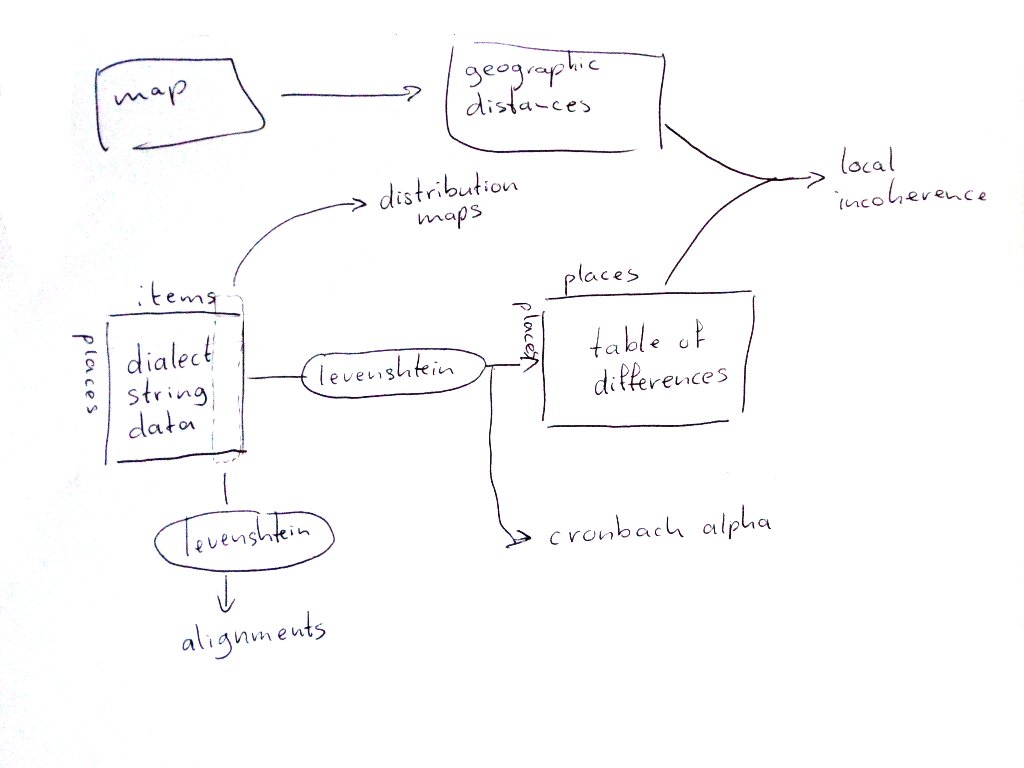 map
geographic
distances
local
incoherence
distribution
maps
items
places
dialect
string
data
levenshtein
places
places
table of
differences
levenshtein
cronbach alpha
alignments